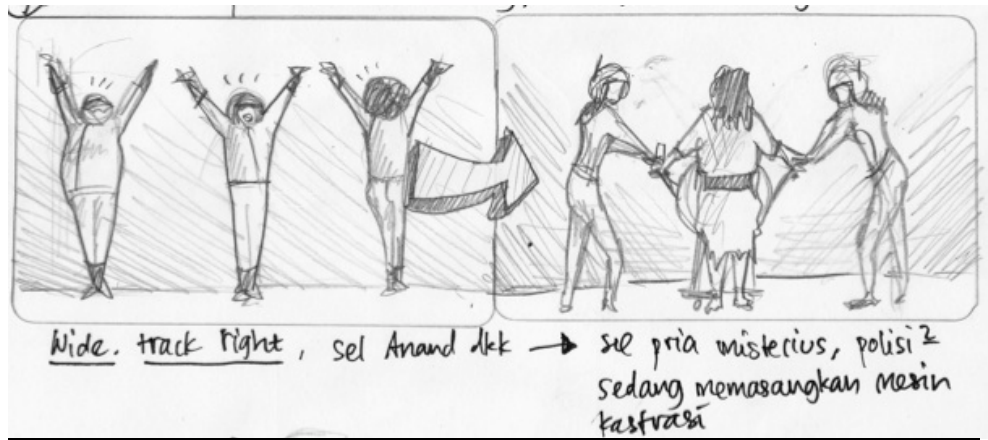 Wide. track right, sel Anand dkk → sel pria misterius, polisi²
sedang memasangkan mesin
kastrasi